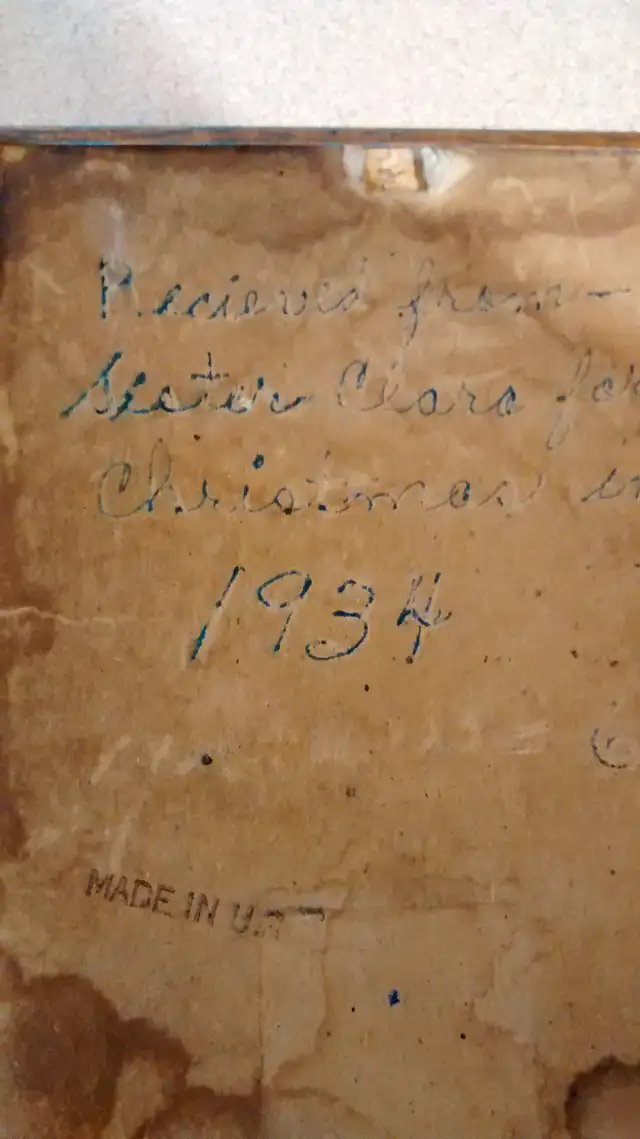 Recieved from —
Sister Clara for
Christmas in
1934
MADE IN U.